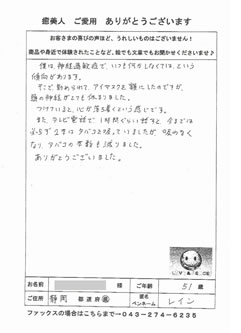 癒美人 ご愛用 ありがとうございます
お客さまの喜びの声ほど、うれしいものはございません!
商品や身近で体験されたことなど、絵でも文章でもお聞かせくださいませ♪
僕は、神経過敏症で、いつも何かしなくては、という
傾向があります。
そこで勧められて、アイマスクを額にしたのですが、
頭の神経がとても休まりました。
つけていると、心が落ち着くという感じです。
また、テレビ電話で1時間ぐらい話すと、今までは
必ず2本はタバコを吸っていましたが、吸わなく
なり、タバコの本数も減りました。
ありがとうございました。
お名前 様 ご年齢 51 歳
ご住所 静岡 都道府県 愛名・ペンネーム レイン
ファックスの場合はこちらまで…043-274-6235